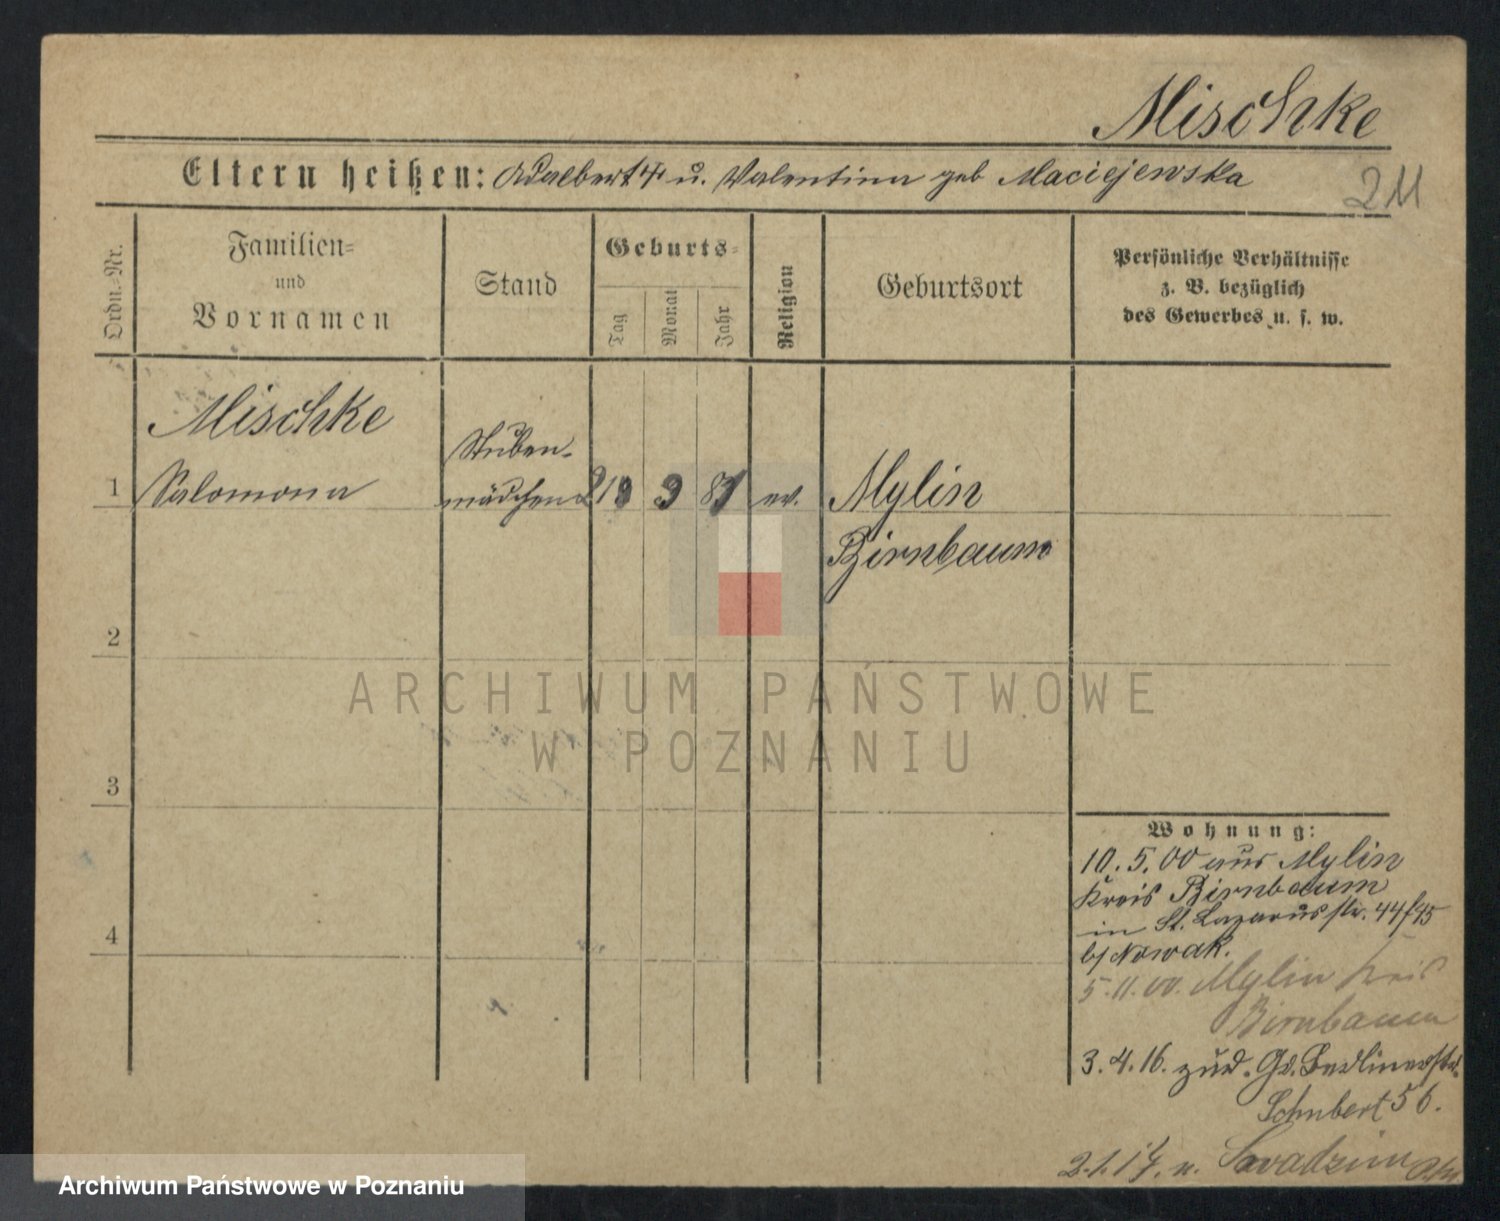 Mischke
Eltern heißen: Adalbert u. Valentina geb Maciejewska
211
Ordn.-Nr.
Familien-
und
Vornamen
Stand
Geburts-
Tag
Monat
Jahr
Religion
Geburtsort
Persönliche Verhältnisse
z. B. bezüglich
des Gewerbes u. s. w.
Mischke
Stuben-
1 Salomona mädchen 9 ev. Mylin
Birnbaum
2
ARCHIWUM PAŃSTWOWE
W POZNANIU
3
Wohnung:
10. 5. 00 aus Mylin
Kreis Birnbaum
in St. Lazarusstr. 44/45
b/ Nowak.
4
5. 11. 00. Mylin Kreis
Birnbaum
3. 4. 16. zud. Gr. Berlinerstr.
Schubert 56.
2. 1. 17. n. Sowadzim
Archiwum Państwowe w Poznaniu